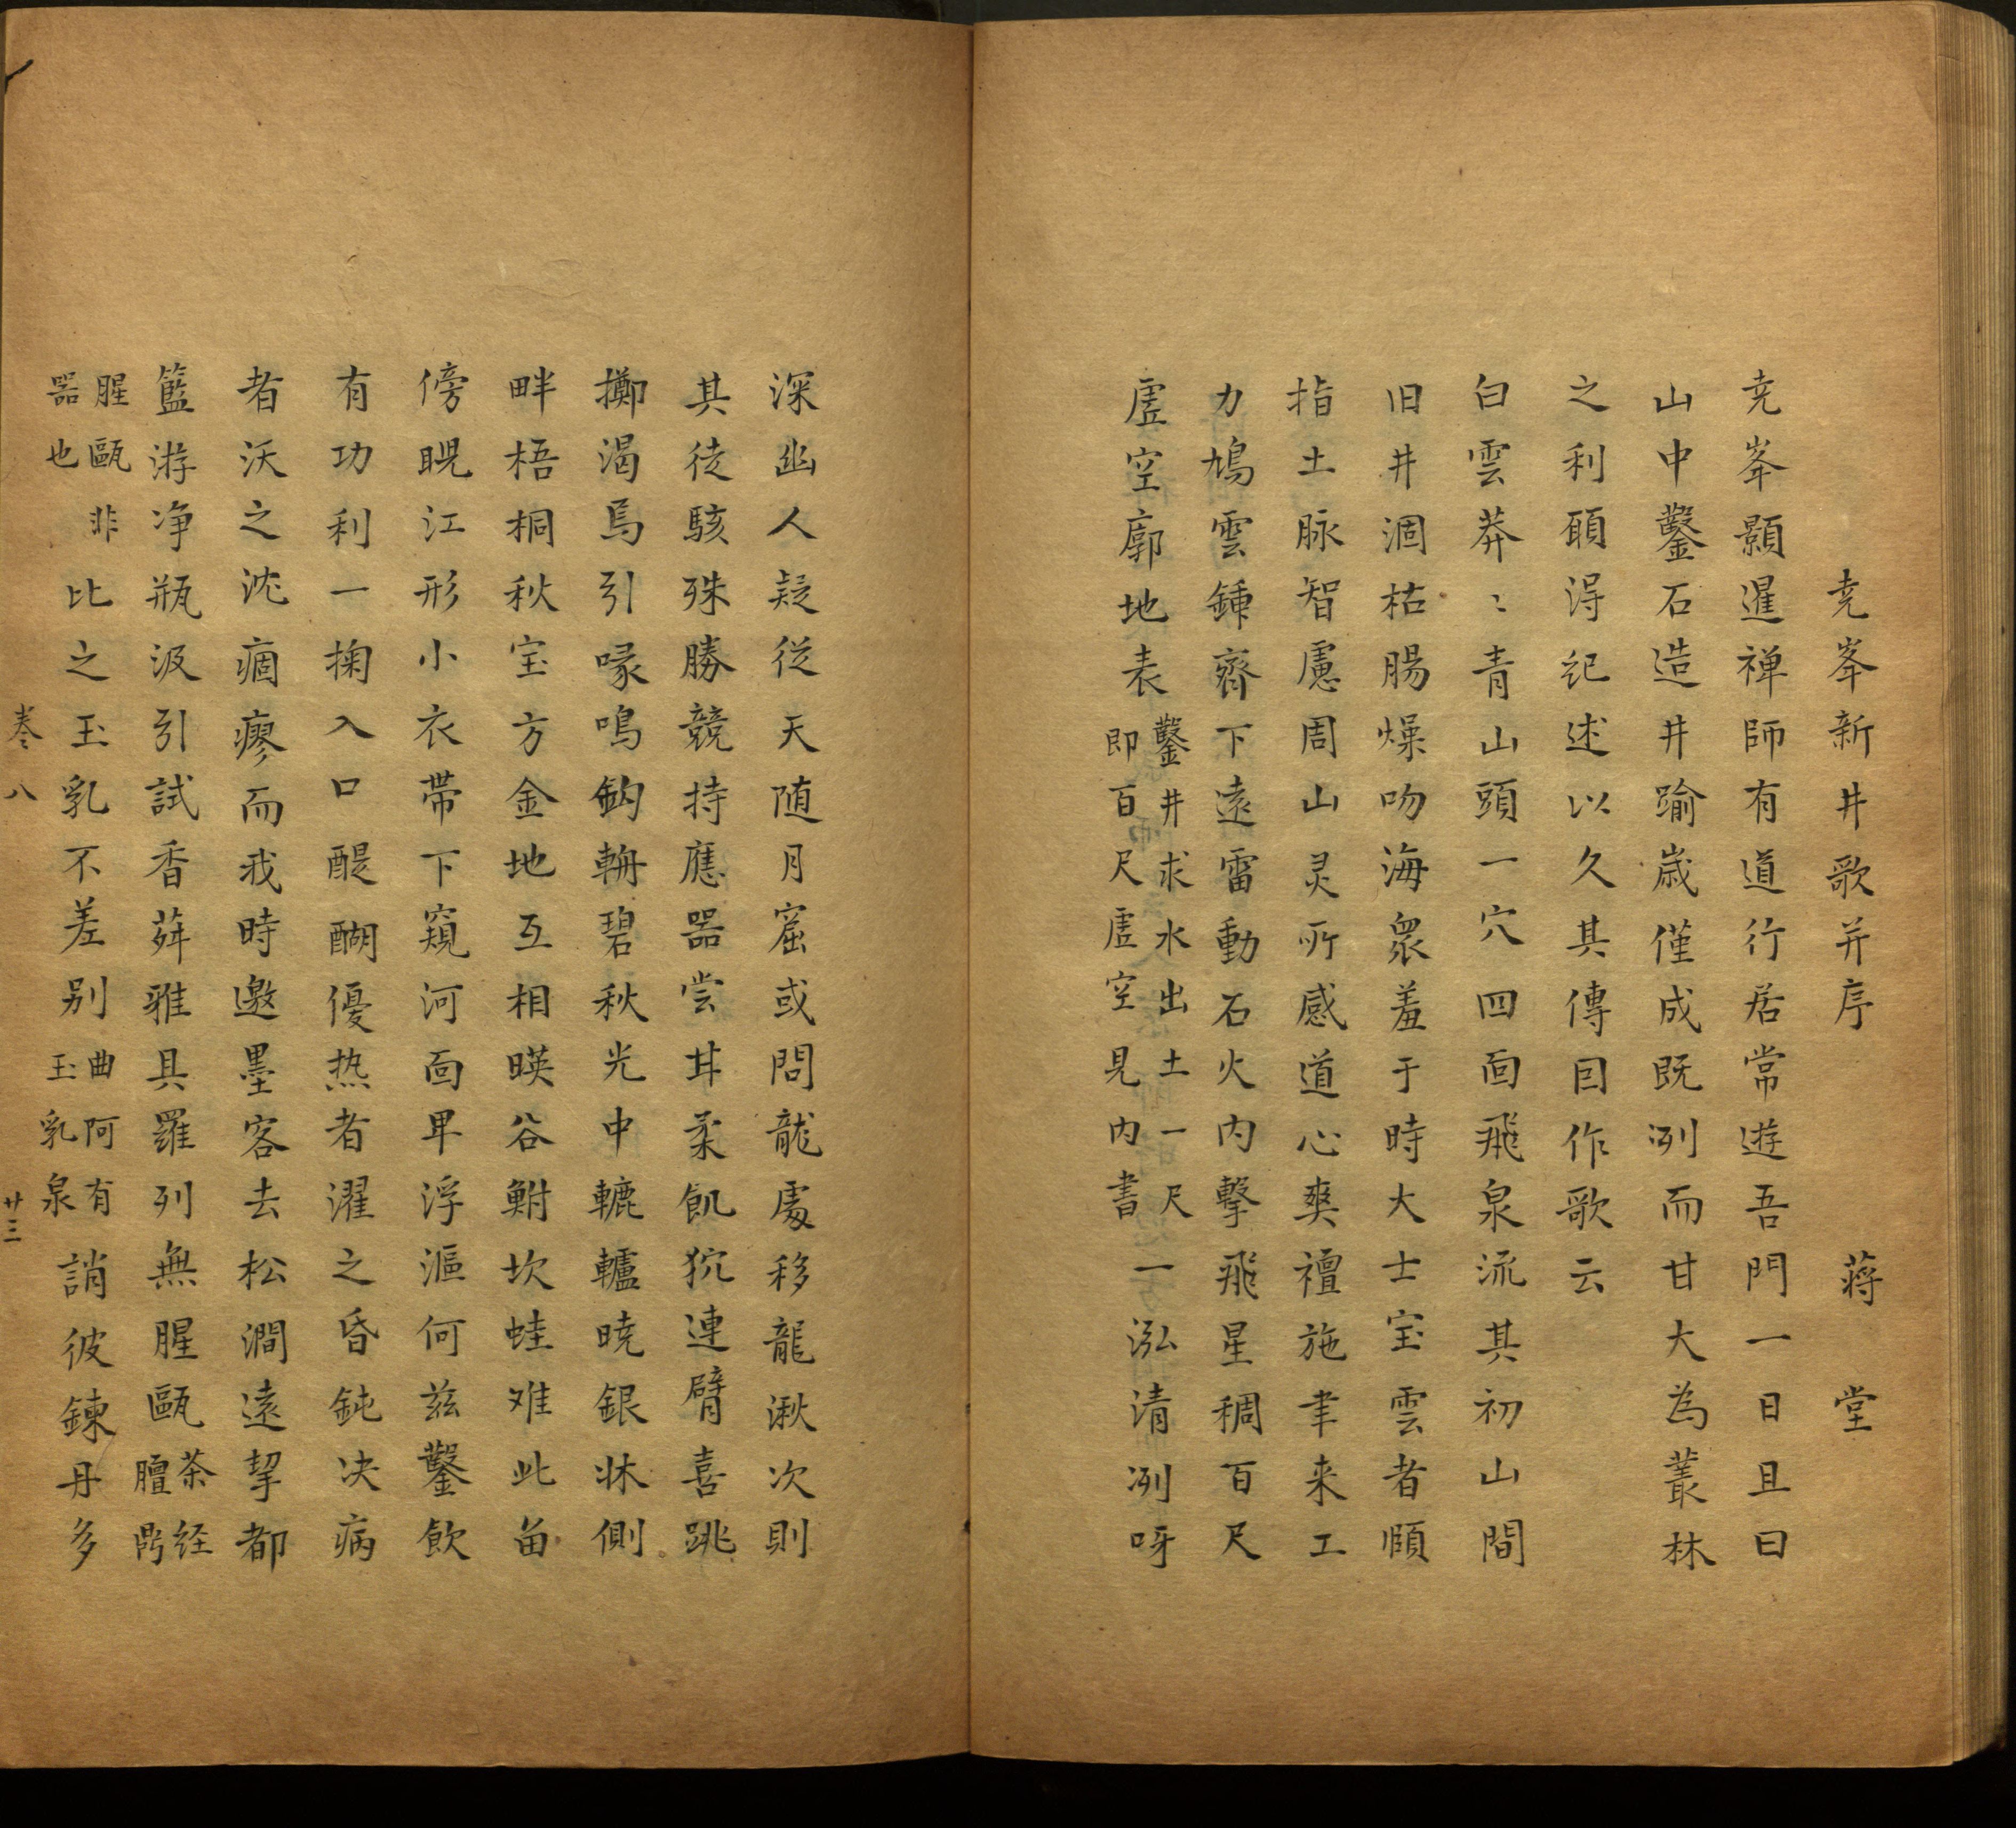 尭峯新井歌并序　蔣堂
尭峯顥暹禅師有道行居常遊吾門一日且曰
山中鑿石造井踰歳僅成既冽而甘大為叢林
之利頋淂記述以久其傳因作歌云
白雲莽〻青山頭一穴四面飛泉流其初山間
旧井涸枯腸燥吻海衆羞于時大士宝雲者頤
指土脉智慮周山灵所感道心爽檀施聿来工
力鳩雲鍤齊下遠雷動石火内撃飛星稠百尺
虗空廓地表鑿井求水出土一尺即百尺虗空見内書一泓清冽呀
深幽人疑従天随月窟或問龍處移龍湫次則
其徒駭殊勝競持應器嘗甘柔飢狖連臂喜跳
擲渴烏引喙鳴鈎輈碧秋光中轆轤暁銀牀側
畔梧桐秋宝方金地互相暎谷鮒坎蛙难此留
傍晲江形小衣帯下窺河面卑浮漚何兹鑿飲
有功利一掬入口醍醐優热者濯之昏鈍决病
者沃之沈痼瘳而我時邀墨客去松澗遠挈都
籃游净瓶汲引試香荈雅具羅列無腥甌茶経膻鼎
腥甌非器也比之玉乳不差别曲阿有玉乳泉誚彼鍊丹多
卷八
廿三